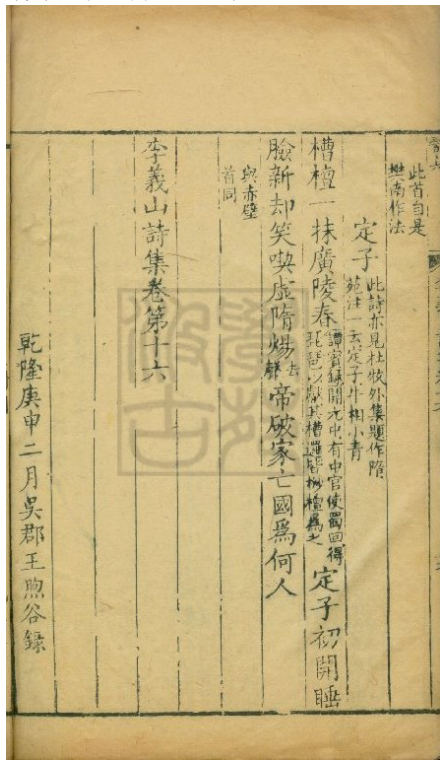 此首自是
樊南作法
定子
此詩亦見杜牧外集題作隋
苑注一云定子牛相小青
槽檀一抹廣陵春
譚賓錄開元中有中官使蜀回得
琵琶以獻其槽邏皆杪檀爲之
定子初開睡
臉新却笑喫虛隋煬去聲帝破家亡國爲何人
與赤壁
首同
李義山詩集卷第十六
乾隆庚申二月吳郡王煦谷錄